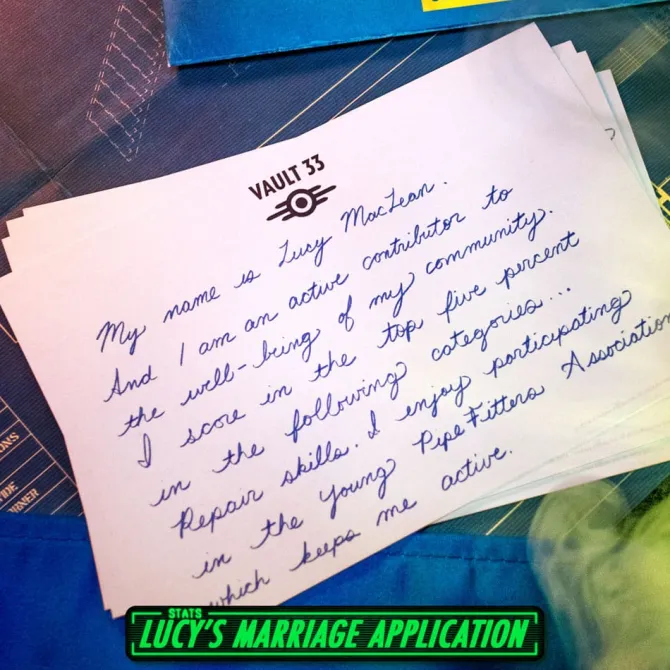 VAULT 33
My name is Lucy MacLean.
And I am an active contributor to
the well-being of my community.
I score in the top five percent
in the following categories...
Repair skills. I enjoy participating
in the Young Pipe Fitters Association
which keeps me active.
ONS
IDE
RNER
STATS
LUCY'S MARRIAGE APPLICATION